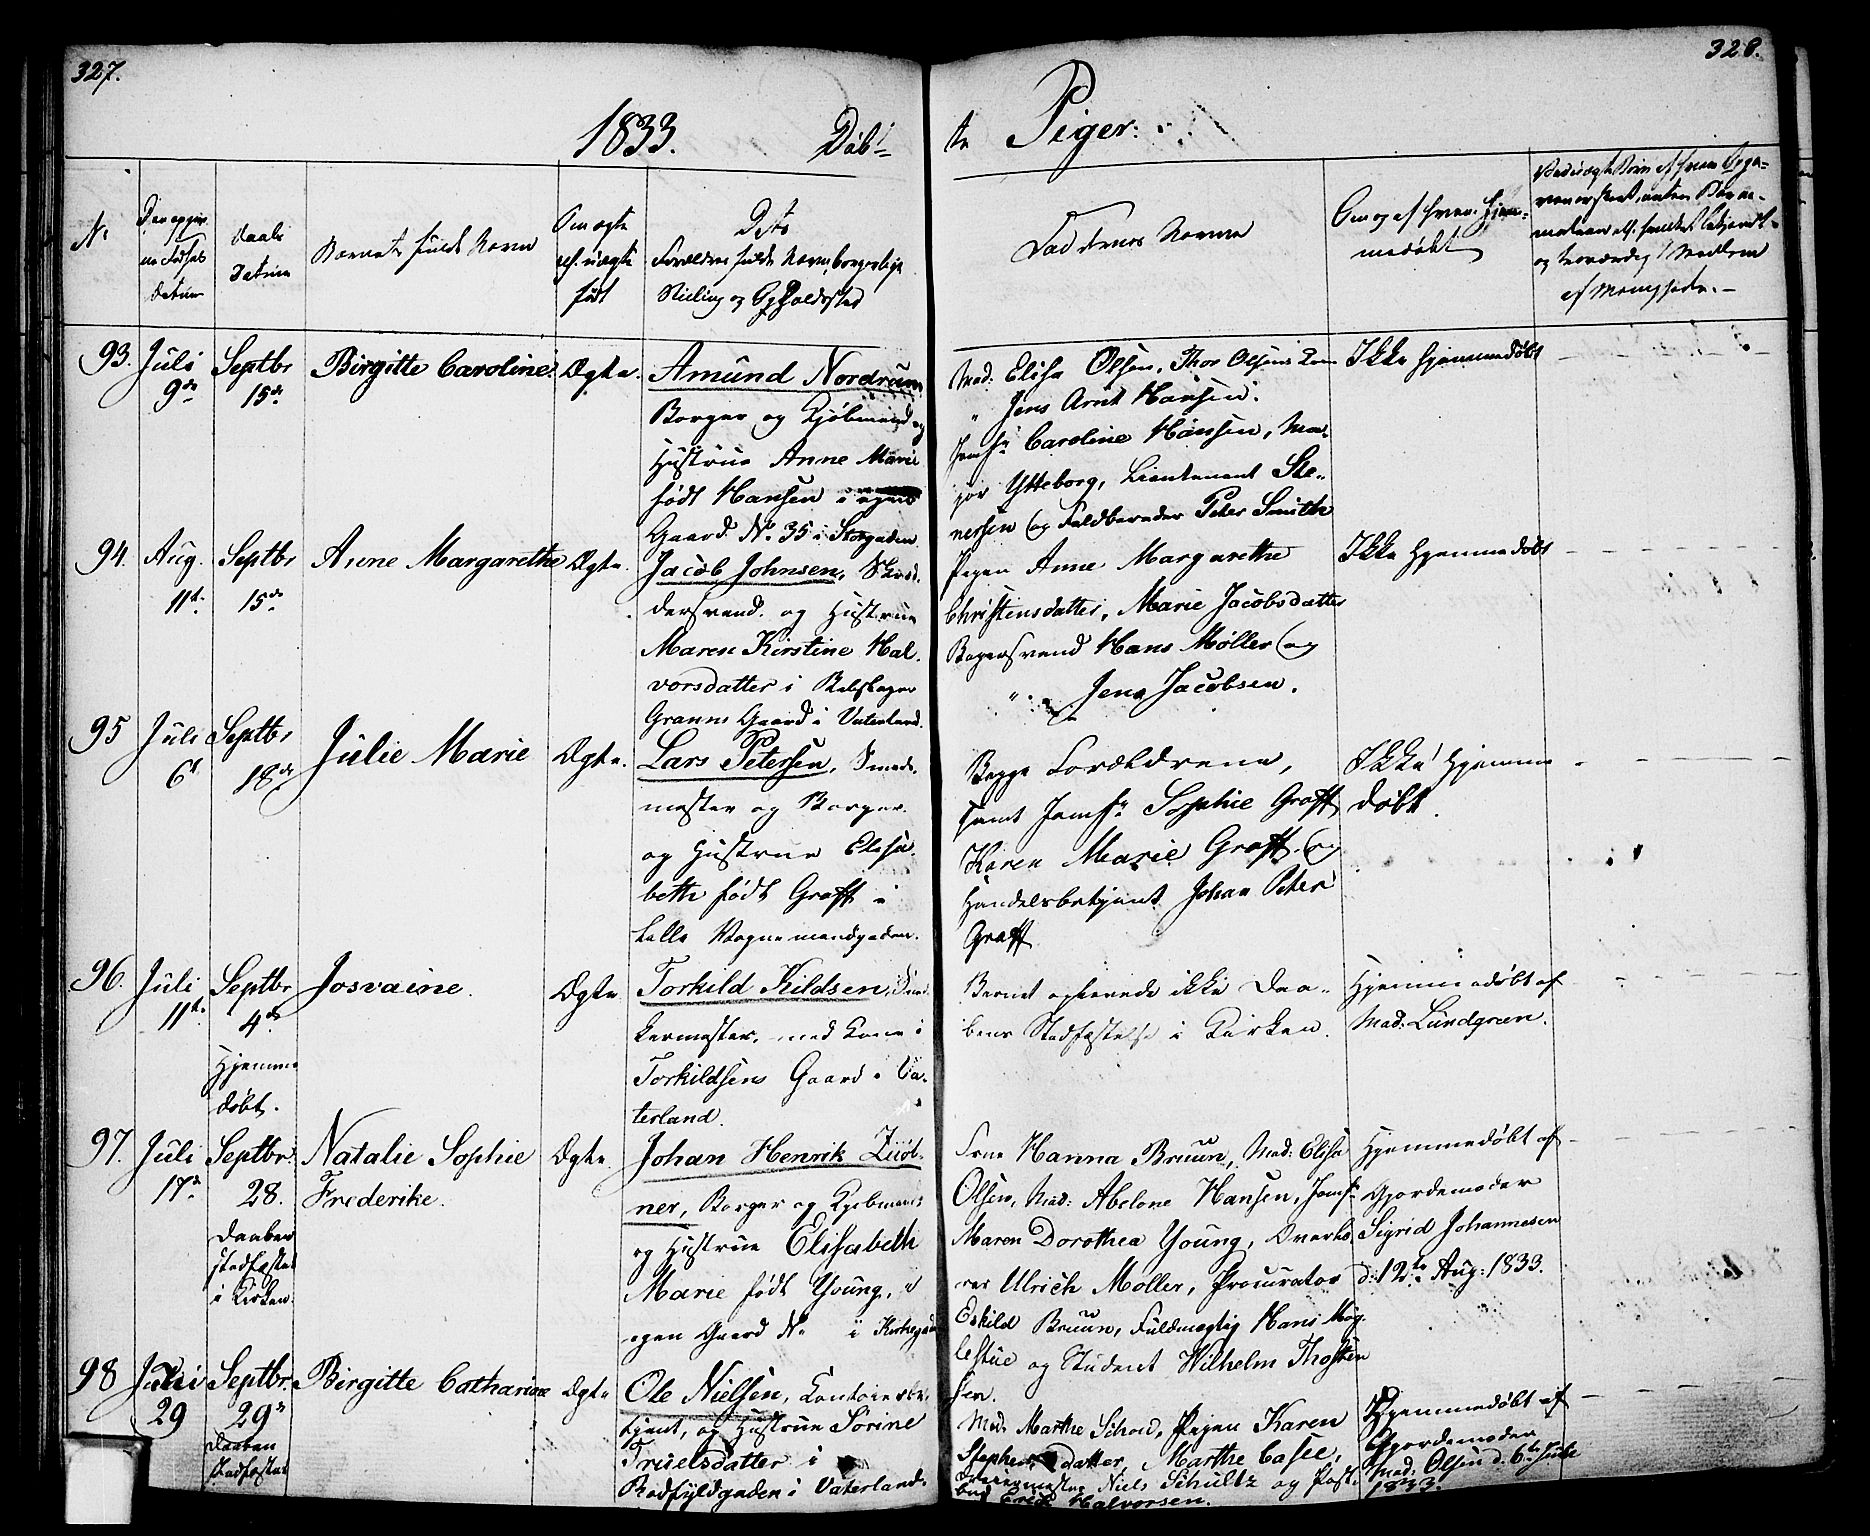 327.
328.
1833. Døb-
te Piger:
No
Den opgiv-
ne Fødsels
Datum
Daabs
Datum
Barnets fulde Navn
Om ægte
el. uægte
født
Dets
Forældres fulde Navn, borgerlige
Stilling og Opholdssted
Faddernes Navne
Om og af hvem hjem-
medøbt
af Menigheden.
93. Juli
9de
Septbr
15de
Birgitte Caroline.
Ægte.
Amund Nordrum
Borger og Kjøbmand og
Hustrue Anne Marie
født Hansen i egen
Gaard No 35 i Storgaden
Mad: Elise Olsen, Thor Olsens Kone
" Jens Arnt Hansen.
Jomfr Caroline Hansen, Ma-
jor Ytteborg, Lieutenant Ste-
nersen og Feldbereder Peter Smith
Ikke hjemmedøbt
94. Aug.
11te
Septbr
15de
Anne Margarethe
Ægte.
Jacob Johnsen, Skræd-
dersvend og Hustrue
Maren Kirstine Hal-
vorsdatter i
Grønns Gaard i Vaterland.
Pigen Anne Margarethe
Christensdatter, Marie Jacobsdatter
Bagersvend Hans Møller og
" Jens Jacobsen.
Ikke hjemmedøbt
95 Juli
6te
Septbr
18de
Julie Marie
Ægte.
Lars Petersen, Smede-
mester og Borger
og Hustrue Elisa-
beth født Graff i
Lille Vognmandgaden.
Begge Forældrene,
samt Jomfr Sophie Graff
Karen Marie Graff og
Handelsbetjent Johan Peter
Graff
Ikke hjemme
døbt.
96. Juli
11te
Septbr
4de
Hjemme
døbt.
Josvaine.
Ægte
Torkild Kildsen, Sned-
kermester, med Kone i
Torkildsens Gaard i Va-
terland.
Barnet opleevede ikke Daa-
bens Stadfæstelse i Kirken.
Hjemmedøbt af
Mad: Lundgreen.
97. Juli
17de
Septbr.
28.
Daaben
stadfæstet
i Kirken.
Natalie Sophie
Frederike.
Ægte
Johan Henrik Züøl-
ner, Borger og Kjøbmand
og Hustrue Elisabeth
Marie født Young, i
egen Gaard No i Kirkegaden
Frue Hanna Bruun, Mad: Elise
Olsen, Mad: Abelone Hansen, Jomfr
Maren Dorothea Young, Overkø-
rer Ulrich Møller, Procurator
Eskild Bruun, Fuldmægtig Hans Møg-
lestue og Student Wilhelm Thosten
sen.
Hjemmedøbt af
Gjordemoder
Sigrid Johannesen
d: 12te Aug: 1833.
98 Juli
29
Septbr.
29de
Daaben
stadfæstet
Birgitte Catharine
Ægte
Ole Nielsen, Contoirbe-
tjent, og Hustrue Sørine
Truelsdatter i
Rødfyldgaden i Vaterland.
Mad: Marthe Schou, Pigen Karen
Stephensdatter, Marthe Casee,
Niels Schultz og Post-
bud Erich Halvorsen.
Hjemmedøbt af
Gjordemoder
Mad: Olsen d. 6te
1833.